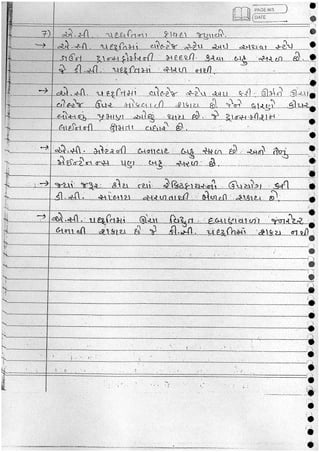 PAGE NO.
DATE
7) એ.સી. પધ્ધતિના ફાયદા જણાવો.
→ એ.સી. પધ્ધતિમાં વોલ્ટેજ સ્ટેપ અપ અથવા સ્ટેપ
ડાઉન ટ્રાન્સફોર્મરની મદદથી કરવા બહુ સરળ છે.
જે ડી.સી. પધ્ધતિમાં સરળ નથી.
→ એ.સી. પધ્ધતિમાં વોલ્ટેજ સ્ટેપ અપ કરી ઊંચા
વોલ્ટેજ ઉપર મોકલાવી શકાય છે જેને કારણે કોપર
લોસનું પ્રમાણ ઓછું થાય છે. જે ટ્રાન્સમીશન
લાઇનની ક્ષમતા વધારે છે.
→ એ.સી. મોટરની બનાવટ બહુ સરળ છે. અને તેનું
મેઇન્ટેનન્સ પણ બહુ સરળ છે.
→ જ્યાં જરૂર હોય ત્યાં રેક્ટિફાયરનો ઉપયોગ કરી
ડી.સી. સપ્લાય સરળતાથી મેળવી શકાય છે.
→ એ.સી. પધ્ધતિમાં ઊંચા વિદ્યુત દબાણવાળા જનરેટર
બનાવી શકાય છે જે ડી.સી. પધ્ધતિમાં શક્ય નથી